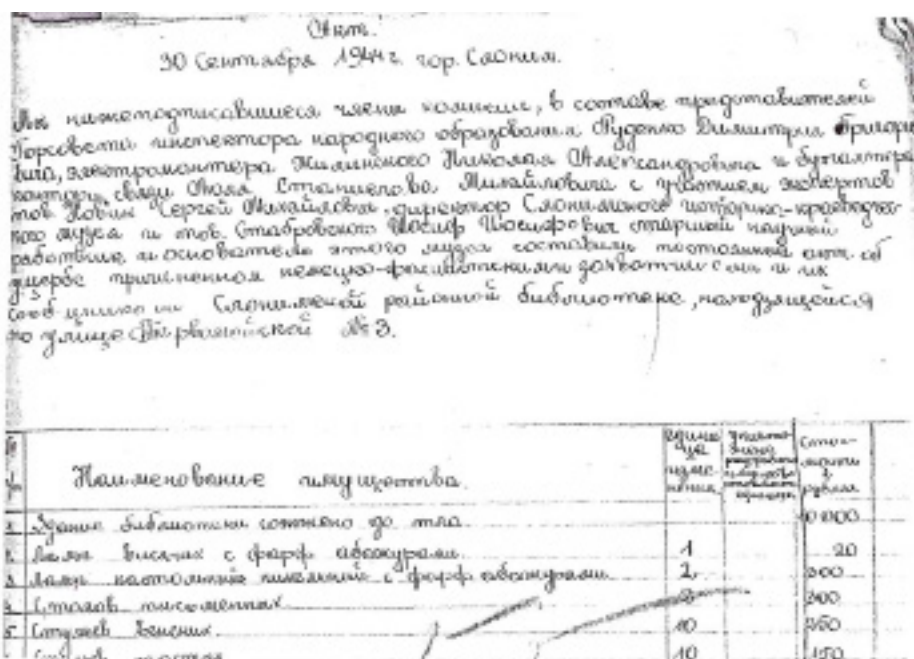 Акт.
30 Сентября 1944 г. гор. Слоним.
Мы нижеподписавшиеся члены комисии, в составе представителей
Горсовета инспектора народного образования Руденко Димитрия Григоре
вича, электромонтера Жилинского Николая Александровича и бухгалтера
конторы связи Станислова Михайловича с участием экспертов
тов. Новик Сергей Михайлович, директор Слонимского историко-краеведчес
кого музея и тов. Стабровского Иосиф Иосифович старший научный
работник и основатель этого музея составили настоящий акт об
ущербе причиненном немецко-фашистскими захватчиками и их
сообщниками Слонимской районной библиотеке, находящейся
по улице Первомайской № 3.
№ Наименование имущества единица измерения Стоимость в рублях
1 Здание библиотеки сожжено до тла
2 Ламп висячих с фарф абажурами 1 20
3 Ламп настольных с фарф абажурами 2
4 Столов письменных
5 Стульев венских 10
10 150